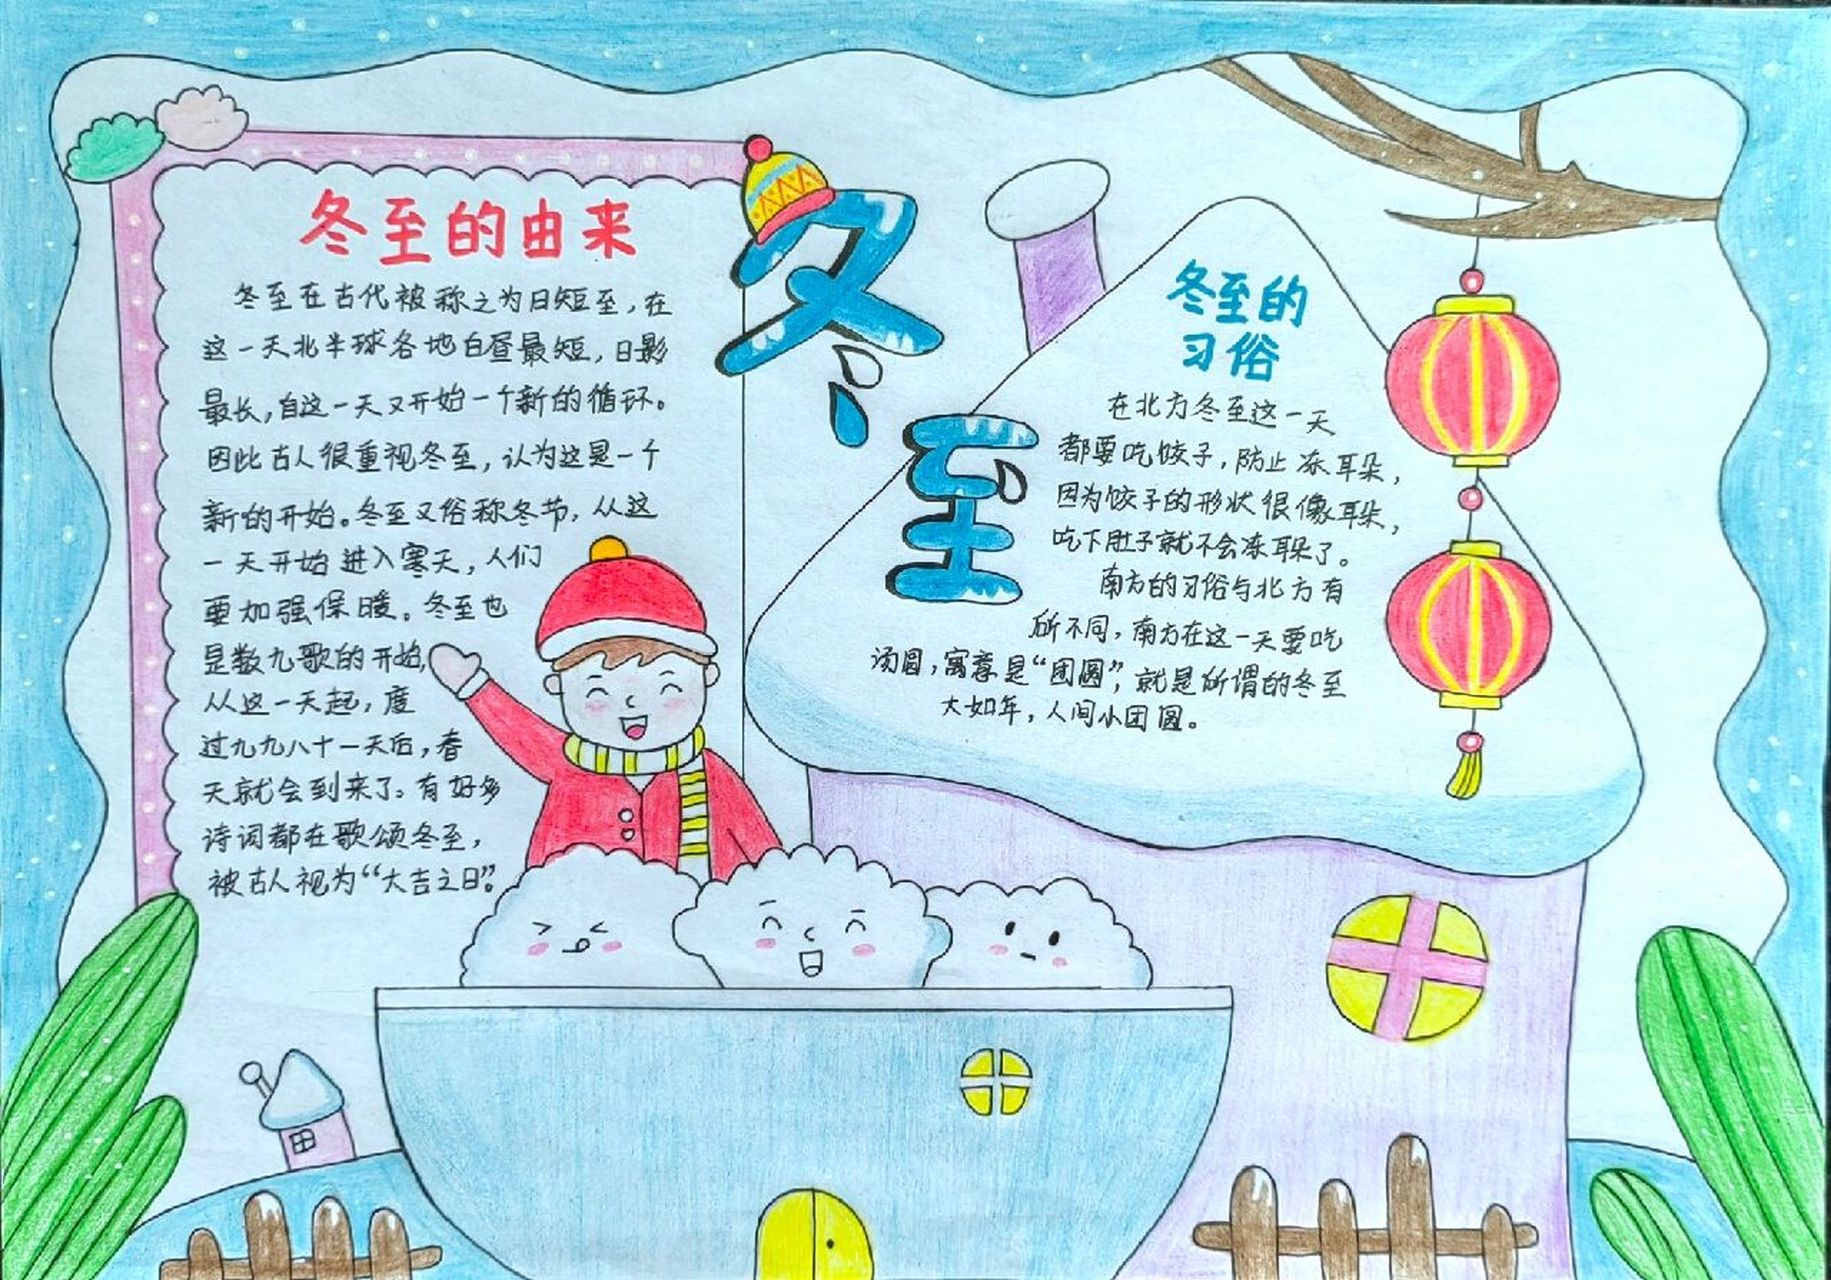 冬至的由来
冬至在古代被称之为日短至，在
这一天北半球各地白昼最短，日影
最长，自这一天又开始一个新的循环。
因此古人很重视冬至，认为这是一个
新的开始。冬至又俗称冬节，从这
一天开始进入寒天，人们
要加强保暖。冬至也
是数九歌的开始，
从这一天起，度
过九九八十一天后，春
天就会到来了。有好多
诗词都在歌颂冬至，
被古人视为“大吉之日”。
冬
至
冬至的
习俗
在北方冬至这一天
都要吃饺子，防止冻耳朵，
因为饺子的形状很像耳朵，
吃下肚子就不会冻耳朵了。
南方的习俗与北方有
所不同，南方在这一天要吃
汤圆，寓意是“团圆”，就是所谓的冬至
大如年，人间小团圆。